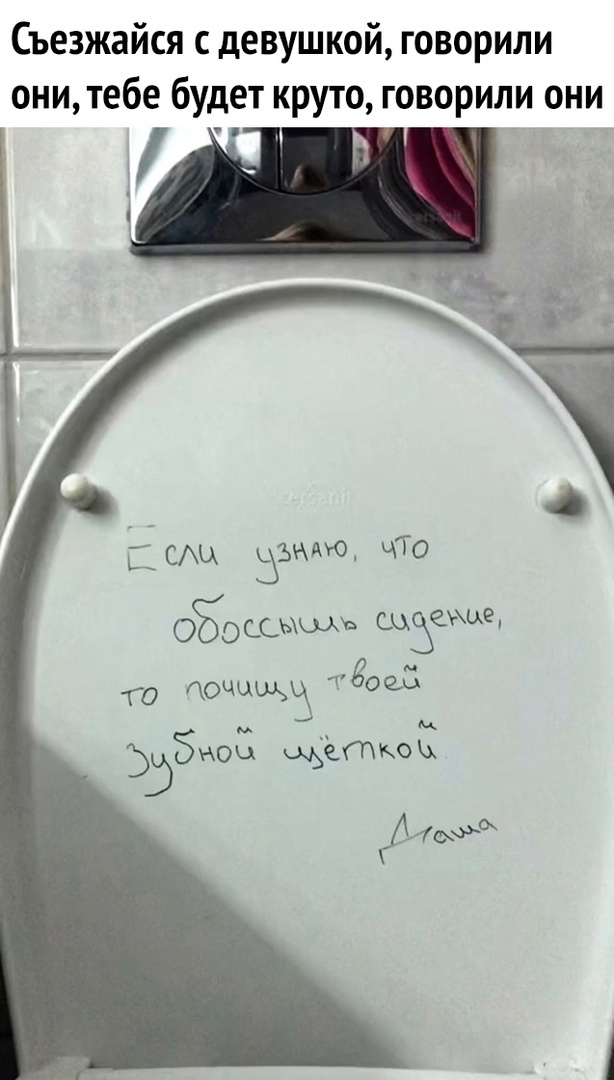 Съезжайся с девушкой, говорили
они, тебе будет круто, говорили они
cersanit
Если узнаю, что
обоссышь сидение,
то почищу твоей
зубной щёткой
Даша